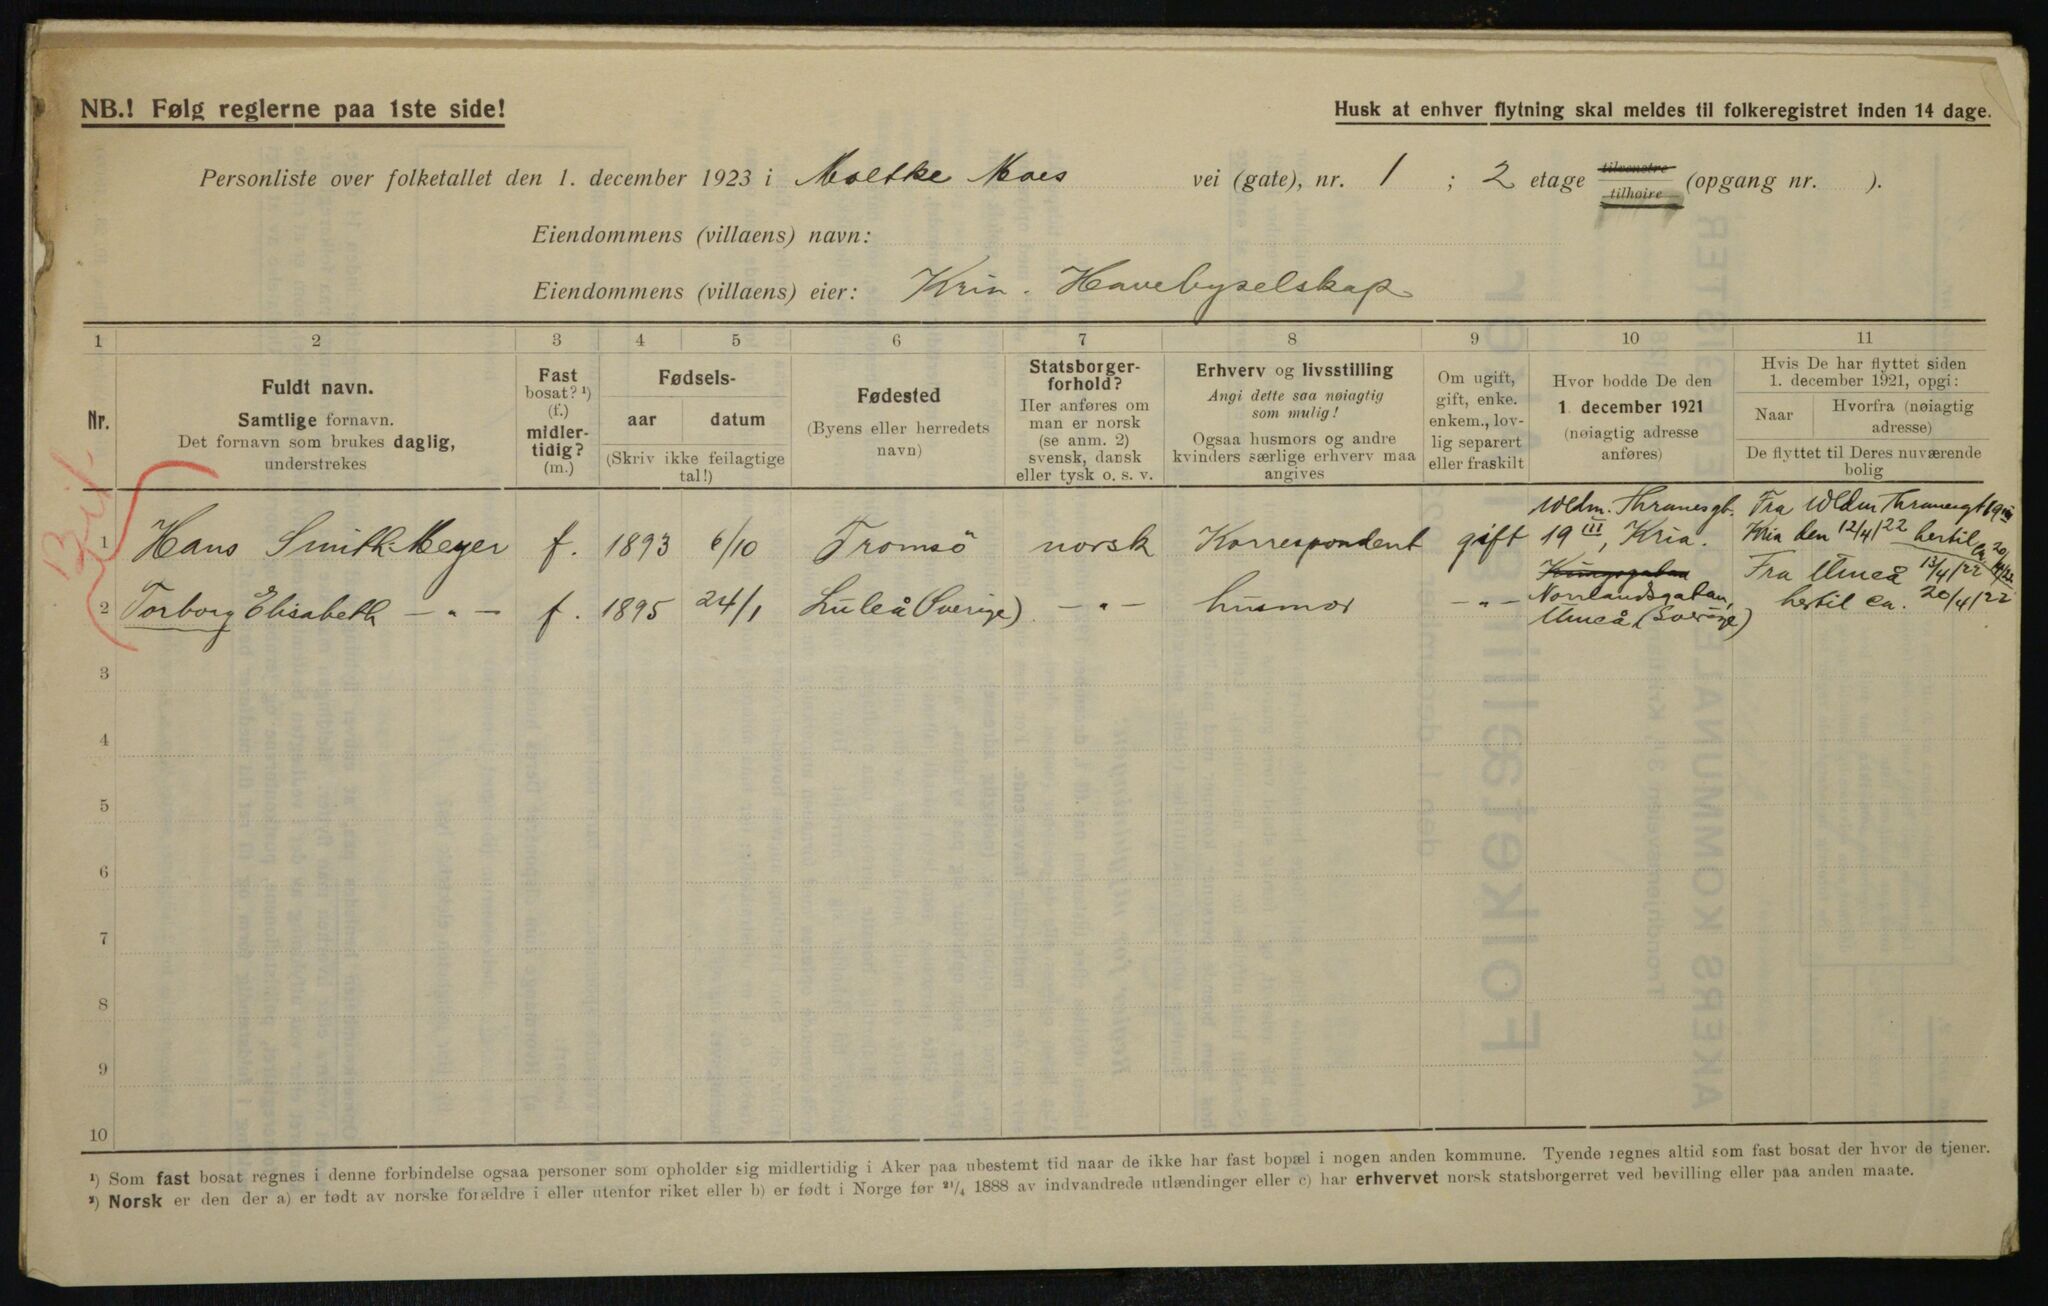 NB.! Følg reglerne paa 1ste side!
Husk at enhver flytning skal meldes til folkeregistret inden 14 dage.
Personliste over folketallet den 1. december 1923 i Moltke Moes vei (gate), nr. 1 ; 2 etage tilvenstre tilhøire (opgang nr. ).
Eiendommens (villaens) navn:
Eiendommens (villaens) eier: Kria. Havebyselskap
1 2 3 4 5 6 7 8 9 10 11
Nr.
Fuldt navn.
Samtlige fornavn.
Det fornavn som brukes daglig,
understrekes
Fast
bosat? ¹)
(f.)
midler-
tidig?
(m.)
Fødsels-
aar datum
(Skriv ikke feilagtige
tal!)
Fødested
(Byens eller herredets
navn)
Statsborger-
forhold?
Her anføres om
man er norsk
(se anm. 2)
svensk, dansk
eller tysk o. s. v.
Erhverv og livsstilling
Angi dette saa nøiagtig
som mulig!
Ogsaa husmors og andre
kvinders særlige erhverv maa
angives
Om ugift,
gift, enke.
enkem., lov-
lig separert
eller fraskilt
Hvor bodde De den
1. december 1921
(nøiagtig adresse
anføres)
Hvis De har flyttet siden
1. december 1921, opgi:
Naar
Hvorfra (nøiagtig
adresse)
De flyttet til Deres nuværende
bolig
1 Hans Smith-Meyer f. 1893 6/10 Tromsö norsk Korrespondent gift
Woldm. Thranesgt.
19 III, Kria.
Fra Woldm Thranesgt 19 III
Kria den 12/4/22 hertil
ca 20/4/22
2 Torborg Elisabeth —„— f. 1895 24/1 Luleå (Sverige) —„— husmor —„—
Kungsgatan
Norrlandsgatan,
Umeå (Sverige)
Fra Umeå 13/4/22
hertil ca. 20/4/22
3
4
5
6
7
8
9
10
¹) Som fast bosat regnes i denne forbindelse ogsaa personer som opholder sig midlertidig i Aker paa ubestemt tid naar de ikke har fast bopæl i nogen anden kommune. Tyende regnes altid som fast bosat der hvor de tjener.
²) Norsk er den der a) er født av norske forældre i eller utenfor riket eller b) er født i Norge før ²¹/₄ 1888 av indvandrede utlændinger eller c) har erhvervet norsk statsborgerret ved bevilling eller paa anden maate.